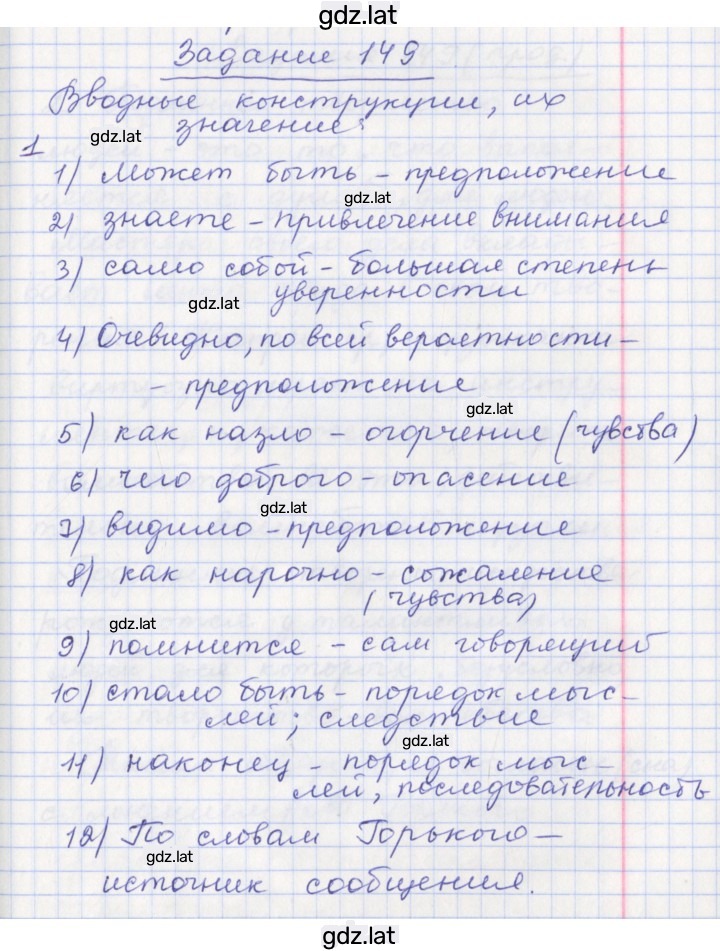 gdz.lat
Задание 149
Вводные конструкции, их
gdz.lat значение:
1
1) Может быть - предположение
gdz.lat
2) знаете - привлечение внимания
3) само собой - большая степень
gdz.lat уверенности
4) Очевидно, по всей вероятности -
- предположение
gdz.lat
5) как назло - огорчение (чувства)
6) чего доброго - опасение
gdz.lat
7) видимо - предположение
8) как нарочно - сожаление
(чувства)
gdz.lat
9) помнится - сам говорящий
10) стало быть - порядок мыс-
лей; следствие
gdz.lat
11) наконец - порядок мыс-
лей, последовательность
12) По словам Горького -
gdz.lat
источник сообщения.
gdz.lat